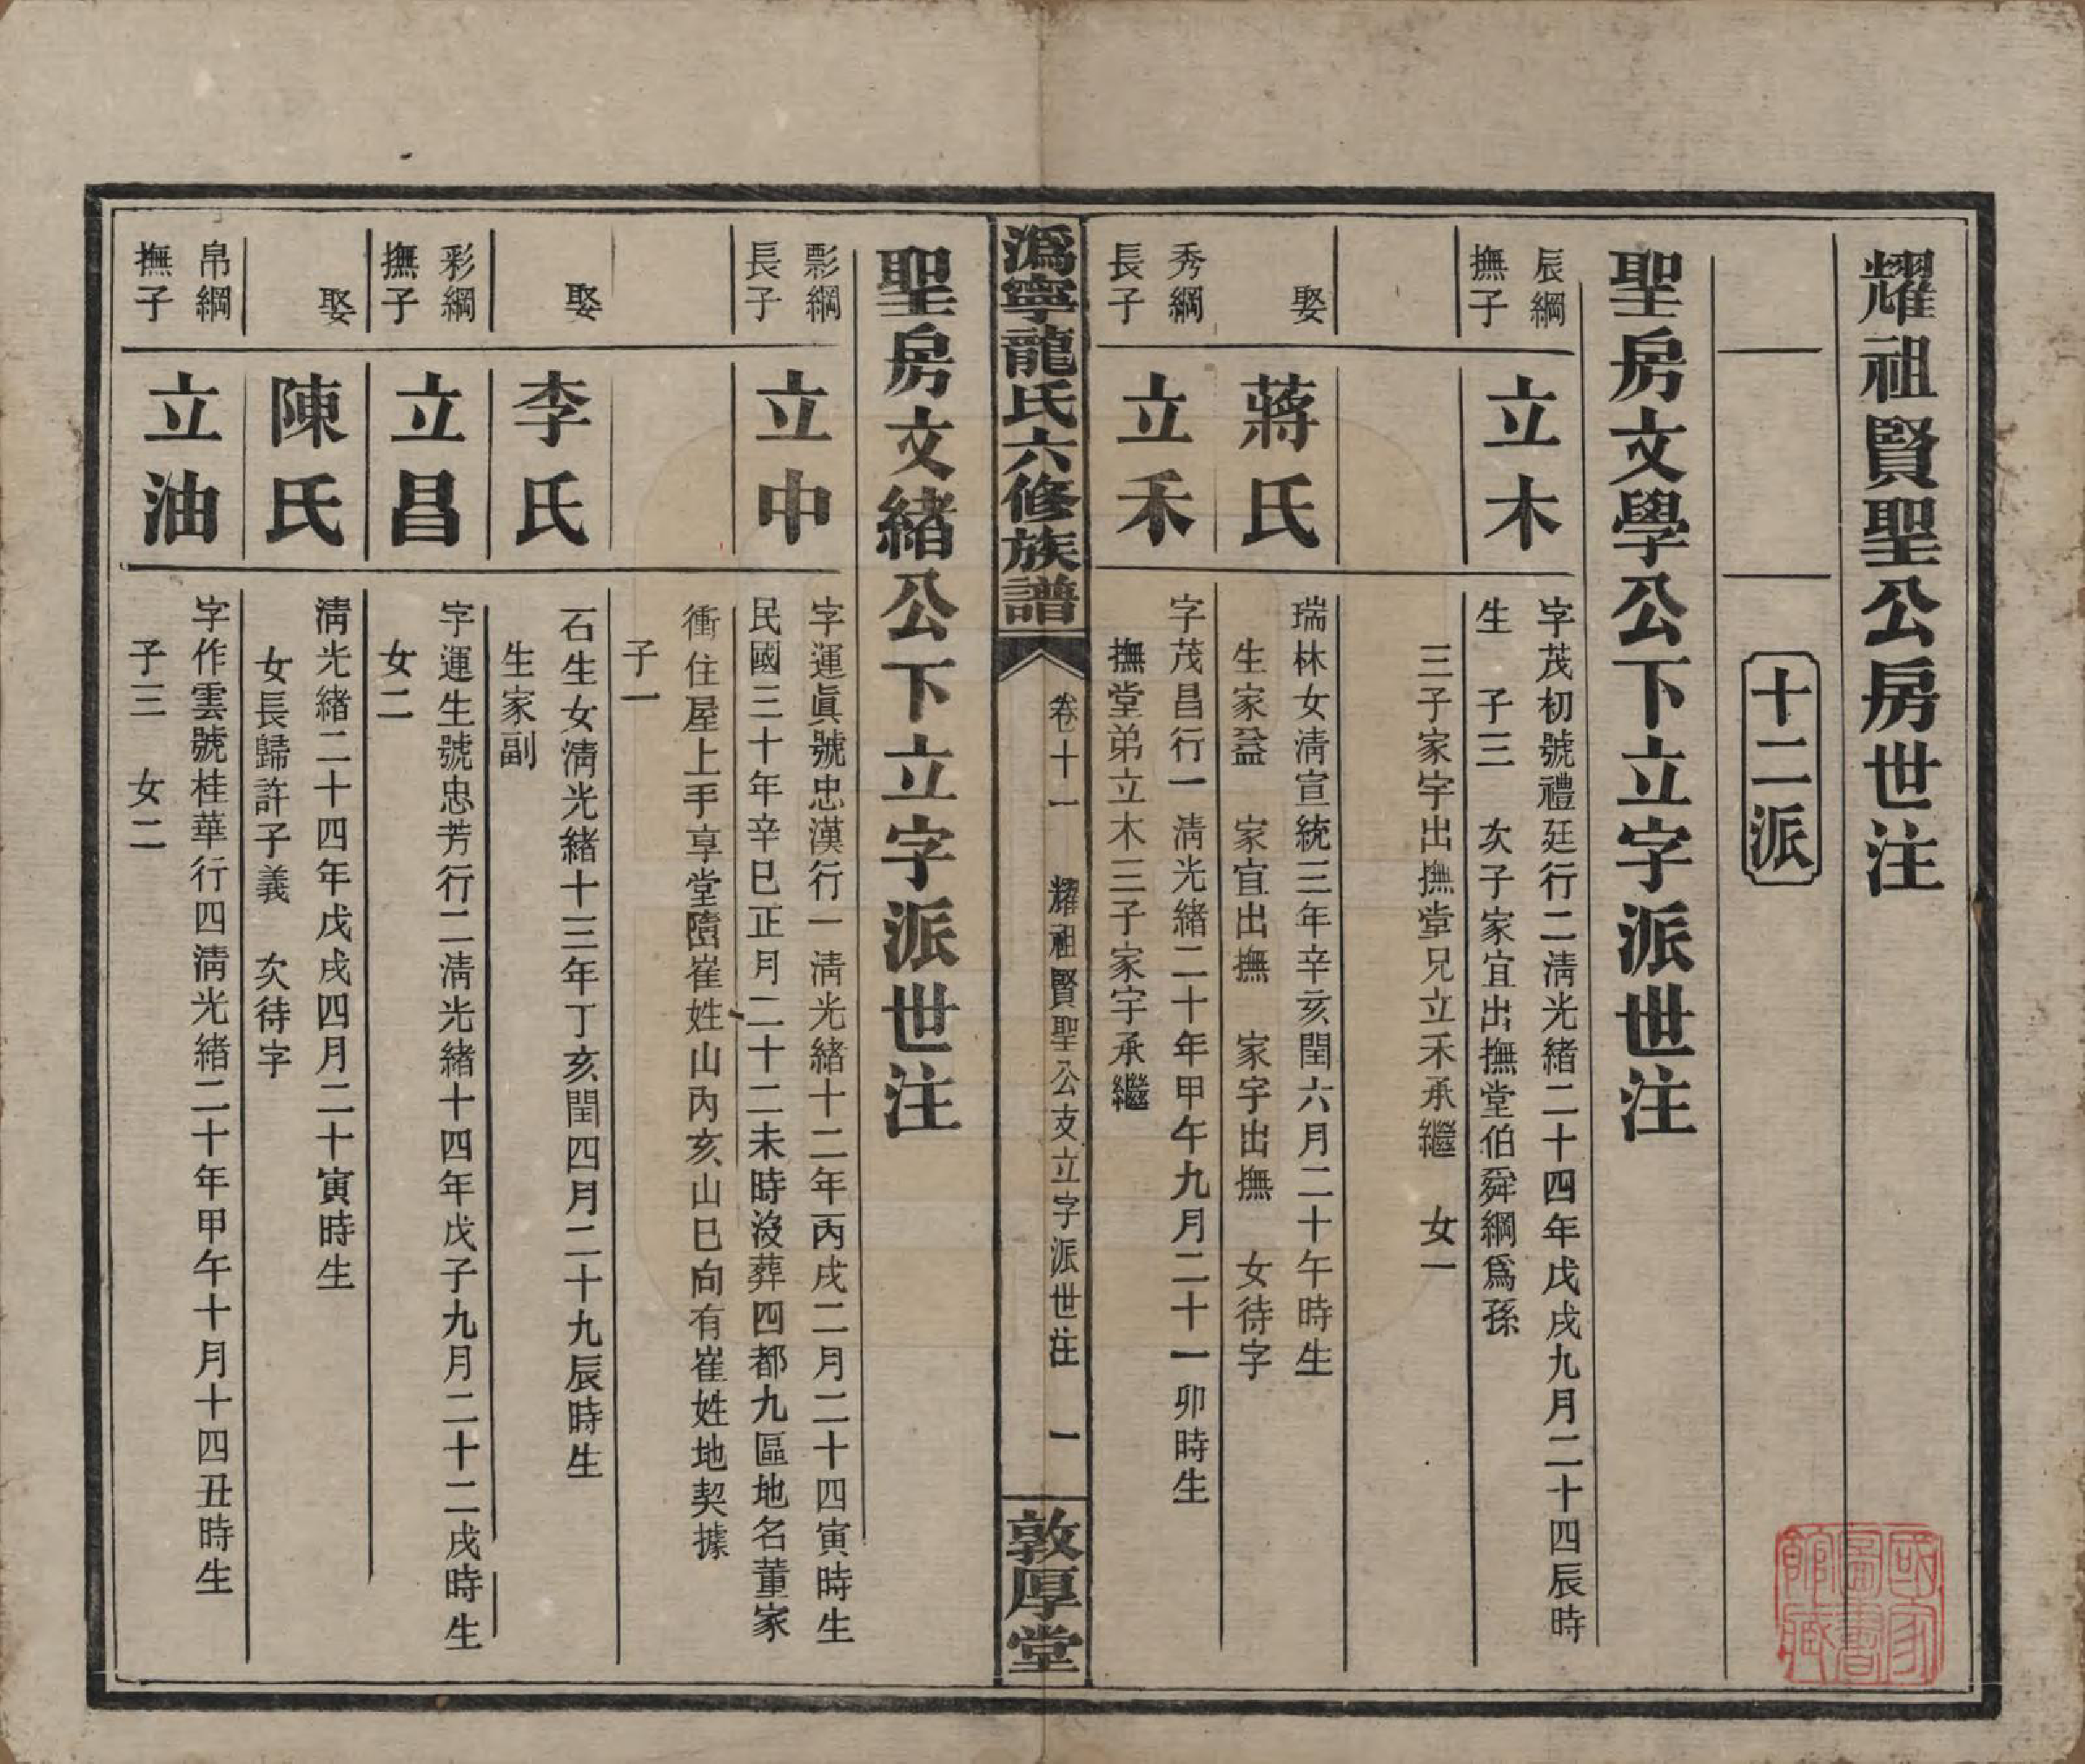 耀祖賢聖公房世注
十二派
聖房文學公下立字派世注
辰綱
撫子
立木
字茂初號禮廷行二淸光緒二十四年戊戌九月二十四辰時
生　子三　次子家宜出撫堂伯舜綱爲孫
三子家宇出撫堂兄立禾承繼　女一
娶
蔣氏
瑞林女淸宣統三年辛亥閏六月二十午時生
生家益　家宜出撫　家宇出撫　女待字
秀綱
長子
立禾
字茂昌行一淸光緒二十年甲午九月二十一卯時生
撫堂弟立木三子家宇承繼
潙寧龍氏六修族譜
卷十一　耀祖賢聖公支立字派世注　一
敦厚堂
聖房文緒公下立字派世注
彯綱
長子
立中
字運眞號忠漢行一淸光緒十二年丙戌二月二十四寅時生
民國三十年辛巳正月二十二未時沒葬四都九區地名董家
衝住屋上手享堂隨崔姓山內亥山巳向有崔姓地契據
子一
娶
李氏
石生女淸光緒十三年丁亥閏四月二十九辰時生
生家副
彩綱
撫子
立昌
字運生號忠芳行二淸光緒十四年戊子九月二十二戌時生
女二
娶
陳氏
淸光緒二十四年戊戌四月二十寅時生
女長歸許子義　次待字
帛綱
撫子
立油
字作雲號桂華行四淸光緒二十年甲午十月十四丑時生
子三　女二
國家
圖書
館藏